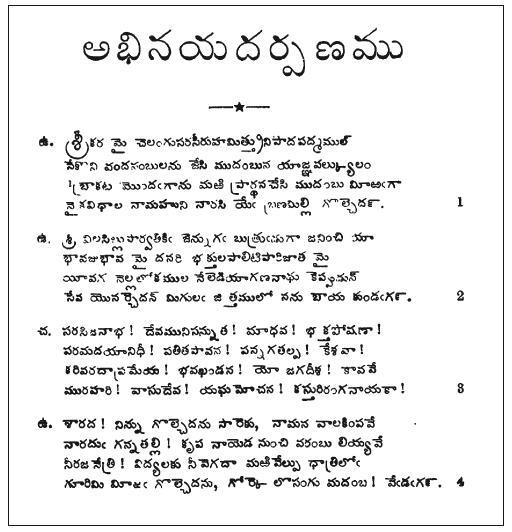 అభినయదర్పణము
ఉ. శ్రీకర మై చెలంగుసరసీరుహమిత్త్రునిపాదపద్మముల్
సేకొని వందనంబులను జేసి ముదంబున యాజ్ఞవల్క్యులం
బ్రాకట మొందఁగాను మఱి ప్రార్థనచేసి ముదంబు మీఱఁగా
నైకవిధాల నామహుని నారసి యేఁ బ్రణమిల్లి గొల్చెదన్. 1
ఉ. శ్రీ విలసిల్లుపార్వతికిఁ జెన్నుగఁ బుత్రుఁడుగా జనించి యా
భావజుభావ మై దనరి భక్తులపాలిటిపారిజాత మై
యీవగ నెల్లలోకముల నేలెడియాగణనాథుఁ కెప్పుడున్
సేవ యొనర్చెదన్ మిగులఁ జిత్తములో నను బాయ కుండఁగన్. 2
చ. పరసిజనాభ! దేవమునిసన్నుత! మాధవ! భక్తపోషణా!
పరమదయానిధీ! పతితపావన! పన్నగతల్ప! కేశవా!
కరివరదాప్రమేయ! భవఖండన! యో జగదీశ! కావవే
మురహరి! వాసుదేవ! యఘమోచన! కస్తురిరంగనాయకా! 3
ఉ. శారద! నిన్ను గొల్చెదను సారెకు, నామన వాలకింపవే
నారదుఁ గన్నతల్లి! కృప నాయెడ నుంచి వరంబు లియ్యవే
నీరజనేత్రి! విద్యలకు నీవెగదా మఱివేల్పు ధాత్రిలోఁ
గూరిమి మీఱఁ గొల్చెదను, గోర్కె లొసంగు మదంబ! వేఁడఁగన్. 4